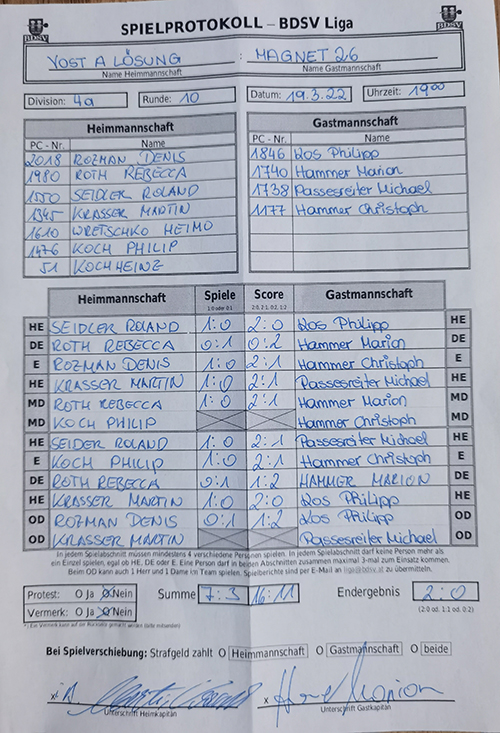 SPIELPROTOKOLL – BDSV Liga
BDSV BDSV
YOST A LÖSUNG : MAGNET 26
Name Heimmannschaft Name Gastmannschaft
Division: 4a Runde: 10 Datum: 19.3.22 Uhrzeit: 19 00
Heimmannschaft Gastmannschaft
PC - Nr. Name PC - Nr. Name
2018 ROZMAN DENIS 1846 Kos Philipp
1980 ROTH REBECCA 1740 Hammer Marion
1550 SEIDLER ROLAND 1738 Passesreiter Michael
1345 KRASSER MARTIN 1177 Hammer Christoph
1610 WRETSCHKO HEIMO
1476 KOCH PHILIP
51 KOCH HEINZ
Heimmannschaft Spiele Score Gastmannschaft
1:0 oder 0:1 2:0, 2:1, 0:2, 1:2
HE SEIDLER ROLAND 1:0 2:0 Kos Philipp HE
DE ROTH REBECCA 0:1 0:2 Hammer Marion DE
E ROZMAN DENIS 1:0 2:1 Hammer Christoph E
HE KRASSER MARTIN 1:0 2:1 Passesreiter Michael HE
MD ROTH REBECCA 1:0 2:1 Hammer Marion MD
MD KOCH PHILIP Hammer Christoph MD
HE SEIDER ROLAND 1:0 2:1 Passesreiter Michael HE
E KOCH PHILIP 1:0 2:1 Hammer Christoph E
DE ROTH REBECCA 0:1 1:2 HAMMER MARION DE
HE KRASSER MARTIN 1:0 2:0 Kos Philipp HE
OD ROZMAN DENIS 0:1 1:2 Kos Philipp OD
OD KRASSER MARTIN Passesreiter Michael OD
In jedem Spielabschnitt müssen mindestens 4 verschiedene Personen spielen. In jedem Spielabschnitt darf keine Person mehr als
ein Einzel spielen, egal ob HE, DE oder E. Eine Person darf in beiden Abschnitten zusammen maximal 3-mal zum Einsatz kommen.
Beim OD kann auch 1 Herr und 1 Dame im Team spielen. Spielberichte sind per E-Mail an liga@bdsv.at zu übermitteln.
Protest: O Ja O Nein Summe 7:3 16:11 Endergebnis 2:0
Vermerk: O Ja O Nein (2:0 od. 1:1 od. 0:2)
Bei Spielverschiebung: Strafgeld zahlt O Heimmannschaft O Gastmannschaft O beide
x x
Unterschrift Heimkapitän Unterschrift Gastkapitän